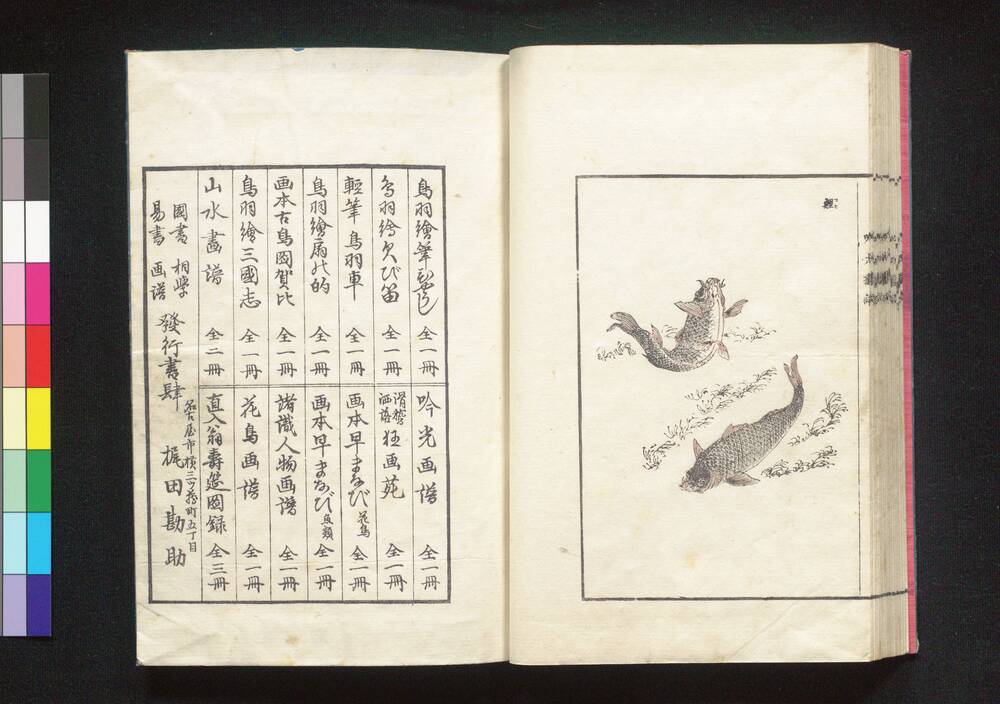 鯉
鳥羽繪筆びやうし 全一冊
鳥羽繪欠び笛 全一冊
輕筆鳥羽車 全一冊
鳥羽繪扇の的 全一冊
画本古鳥図賀比 全一冊
鳥羽繪三國志 全一冊
山水畫譜 全二冊
吟光画譜 全一冊
滑稽洒落 狂画苑 全一冊
画本早まなび 花鳥 全一冊
画本早まなび 魚類 全一冊
諸識人物画譜 全一冊
花鳥画譜 全一冊
直入翁壽筵図録 全三冊
國書 相學
易書 画譜
發行書肆
名古屋市橫三ツ藏町五丁目
梶田勘助